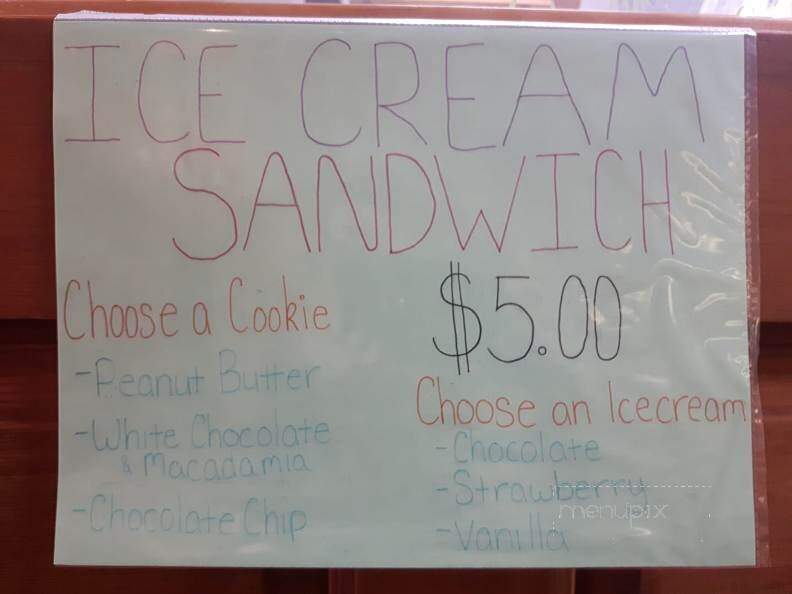 ICE CREAM
SANDWICH
Choose a Cookie
-Peanut Butter
-White Chocolate
& Macadamia
-Chocolate Chip
$5.00
Choose an Icecream
-Chocolate
-Strawberry
-Vanilla
menupix